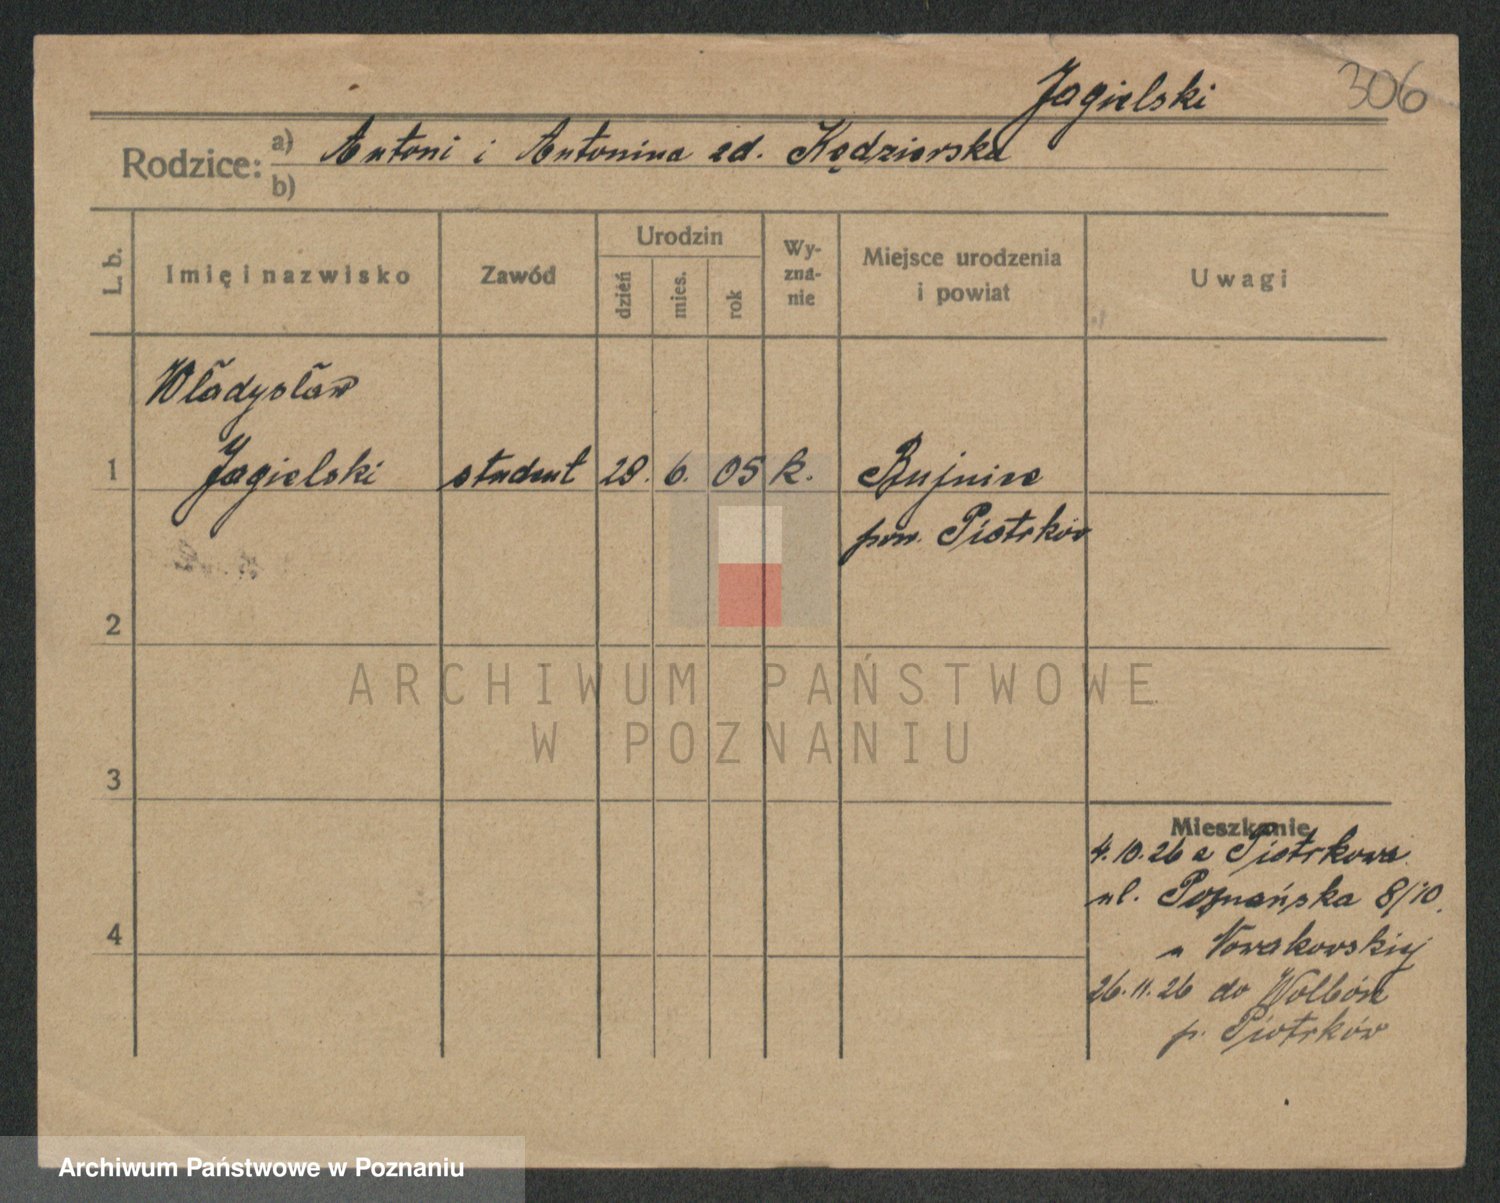 Jagielski 306
Rodzice: a) Antoni i Antonina zd. Kędzierska
b)
L. b. Imię i nazwisko Zawód Urodzin dzień mies. rok Wyzna-nie Miejsce urodzenia i powiat Uwagi
Władysław
1 Jagielski student 28. 6. 05 k. Bujnice
pow. Piotrków
2
ARCHIWUM PAŃSTWOWE
W POZNANIU
3
Mieszkanie
4.10.26 z Piotrkowa
ul. Poznańska 8/10.
u Nowakowskiej
4
26.11.26 do Wolbórz
p. Piotrków
Archiwum Państwowe w Poznaniu